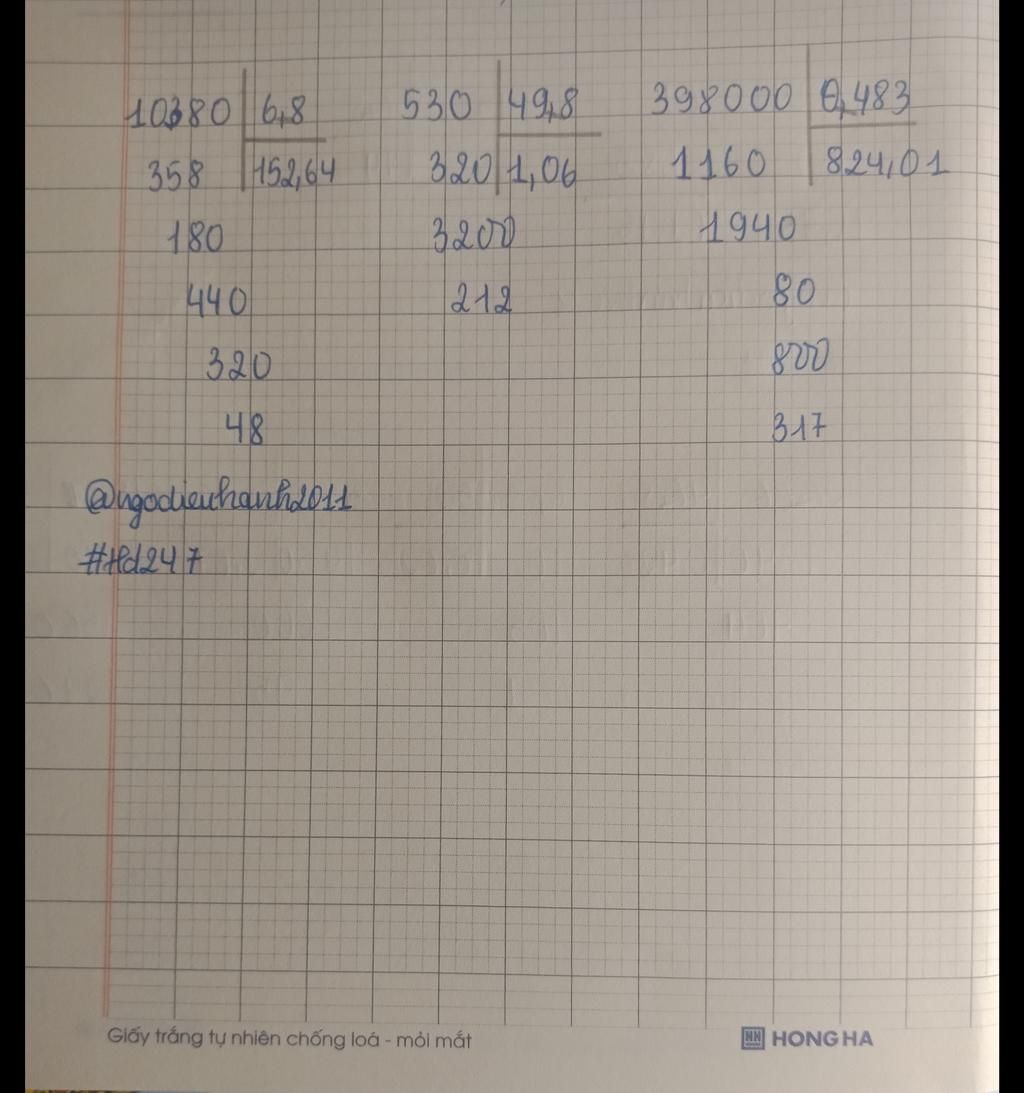 10380 6,8 530 49,8 398000 0,483
358 152,64 320 1,06 1160 824,01
180 3200 1940
440 212 80
320 800
48 317
@ngodieuhanh2011
#Hd247
Giấy trắng tự nhiên chống loá - mỏi mắt HH HONG HA